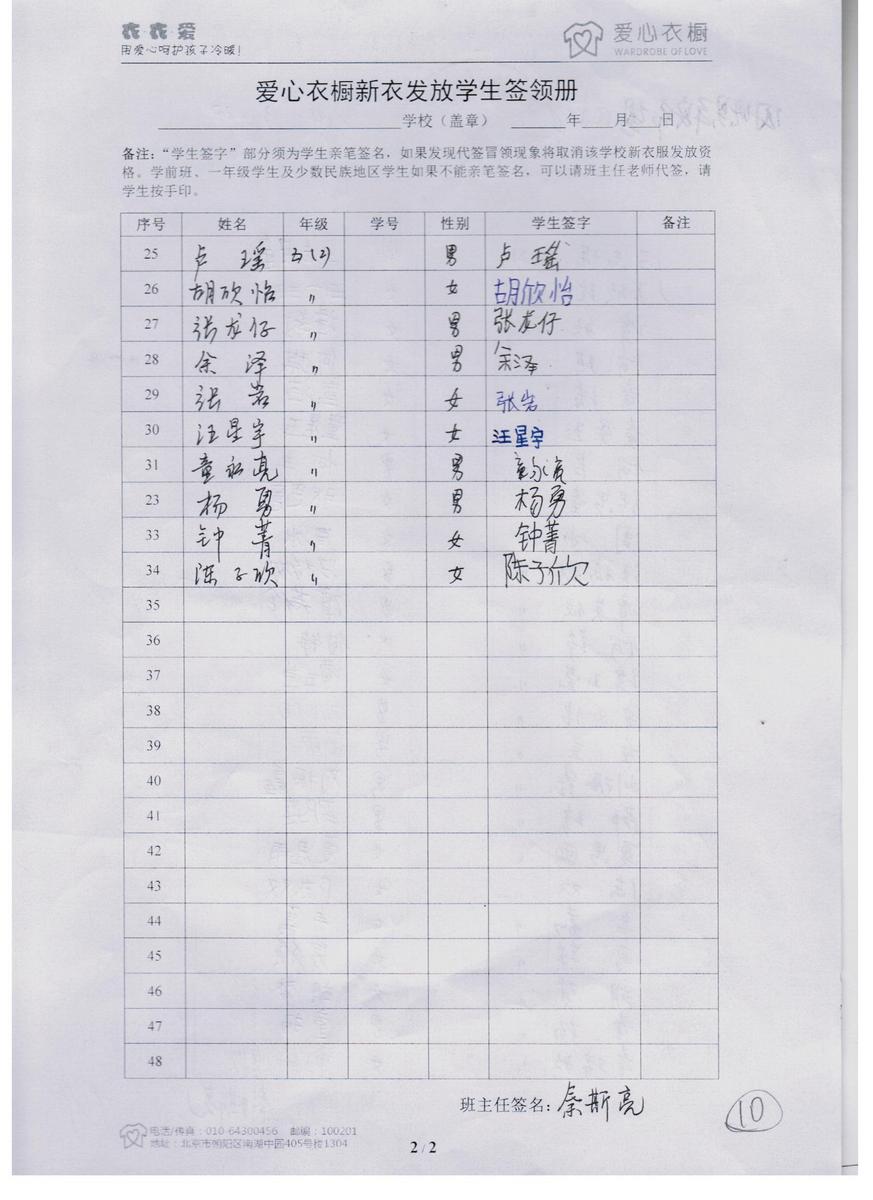 衣衣爱
用爱心呵护孩子冷暖!
爱心衣橱
WARDROBE OF LOVE
爱心衣橱新衣发放学生签领册
学校（盖章） 年 月 日
备注:“学生签字”部分须为学生亲笔签名，如果发现代签冒领现象将取消该学校新衣服发放资
格。学前班、一年级学生及少数民族地区学生如果不能亲笔签名，可以请班主任老师代签，请
学生按手印。
序号 姓名 年级 学号 性别 学生签字 备注
25 卢瑶 五(2) 男 卢瑶
26 胡欣怡 〃 女 胡欣怡
27 张龙仔 〃 男 张龙仔
28 余泽 〃 男 余泽
29 张岩 〃 女 张岩
30 汪星宇 〃 女 汪星宇
31 童永亮 〃 男 童永亮
23 杨勇 〃 男 杨勇
33 钟菁 〃 女 钟菁
34 陈子欣 〃 女 陈子欣
35
36
37
38
39
40
41
42
43
44
45
46
47
48
班主任签名: 秦斯亮
10
电话/传真：010-64300456 邮编：100201
地址：北京市朝阳区南湖中园405号楼1304
2 / 2